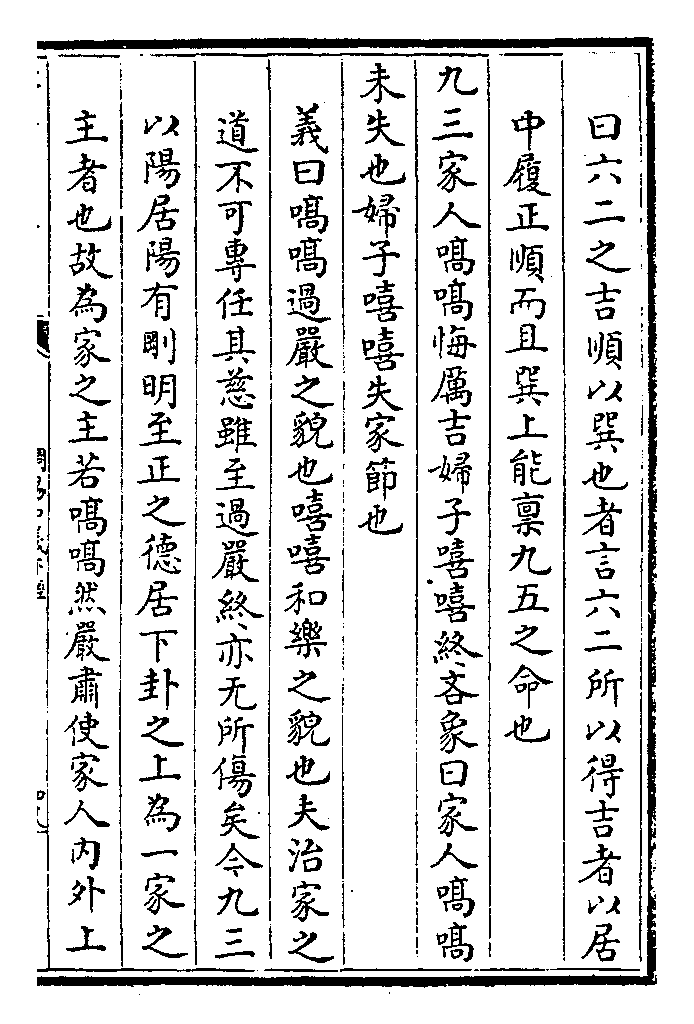 曰六二之吉順以巽也者言六二所以得吉者以居
中履正順而且巽上能禀九五之命也
九三家人嗃嗃悔厲吉婦子嘻嘻終吝象曰家人嗃嗃
未失也婦子嘻嘻失家節也
義曰嗃嗃過嚴之貌也嘻嘻和樂之貌也夫治家之
道不可專任其慈雖至過嚴終亦无所傷矣今九三
以陽居陽有剛明至正之德居下卦之上為一家之
主者也故為家之主若嗃嗃然嚴肅使家人内外上